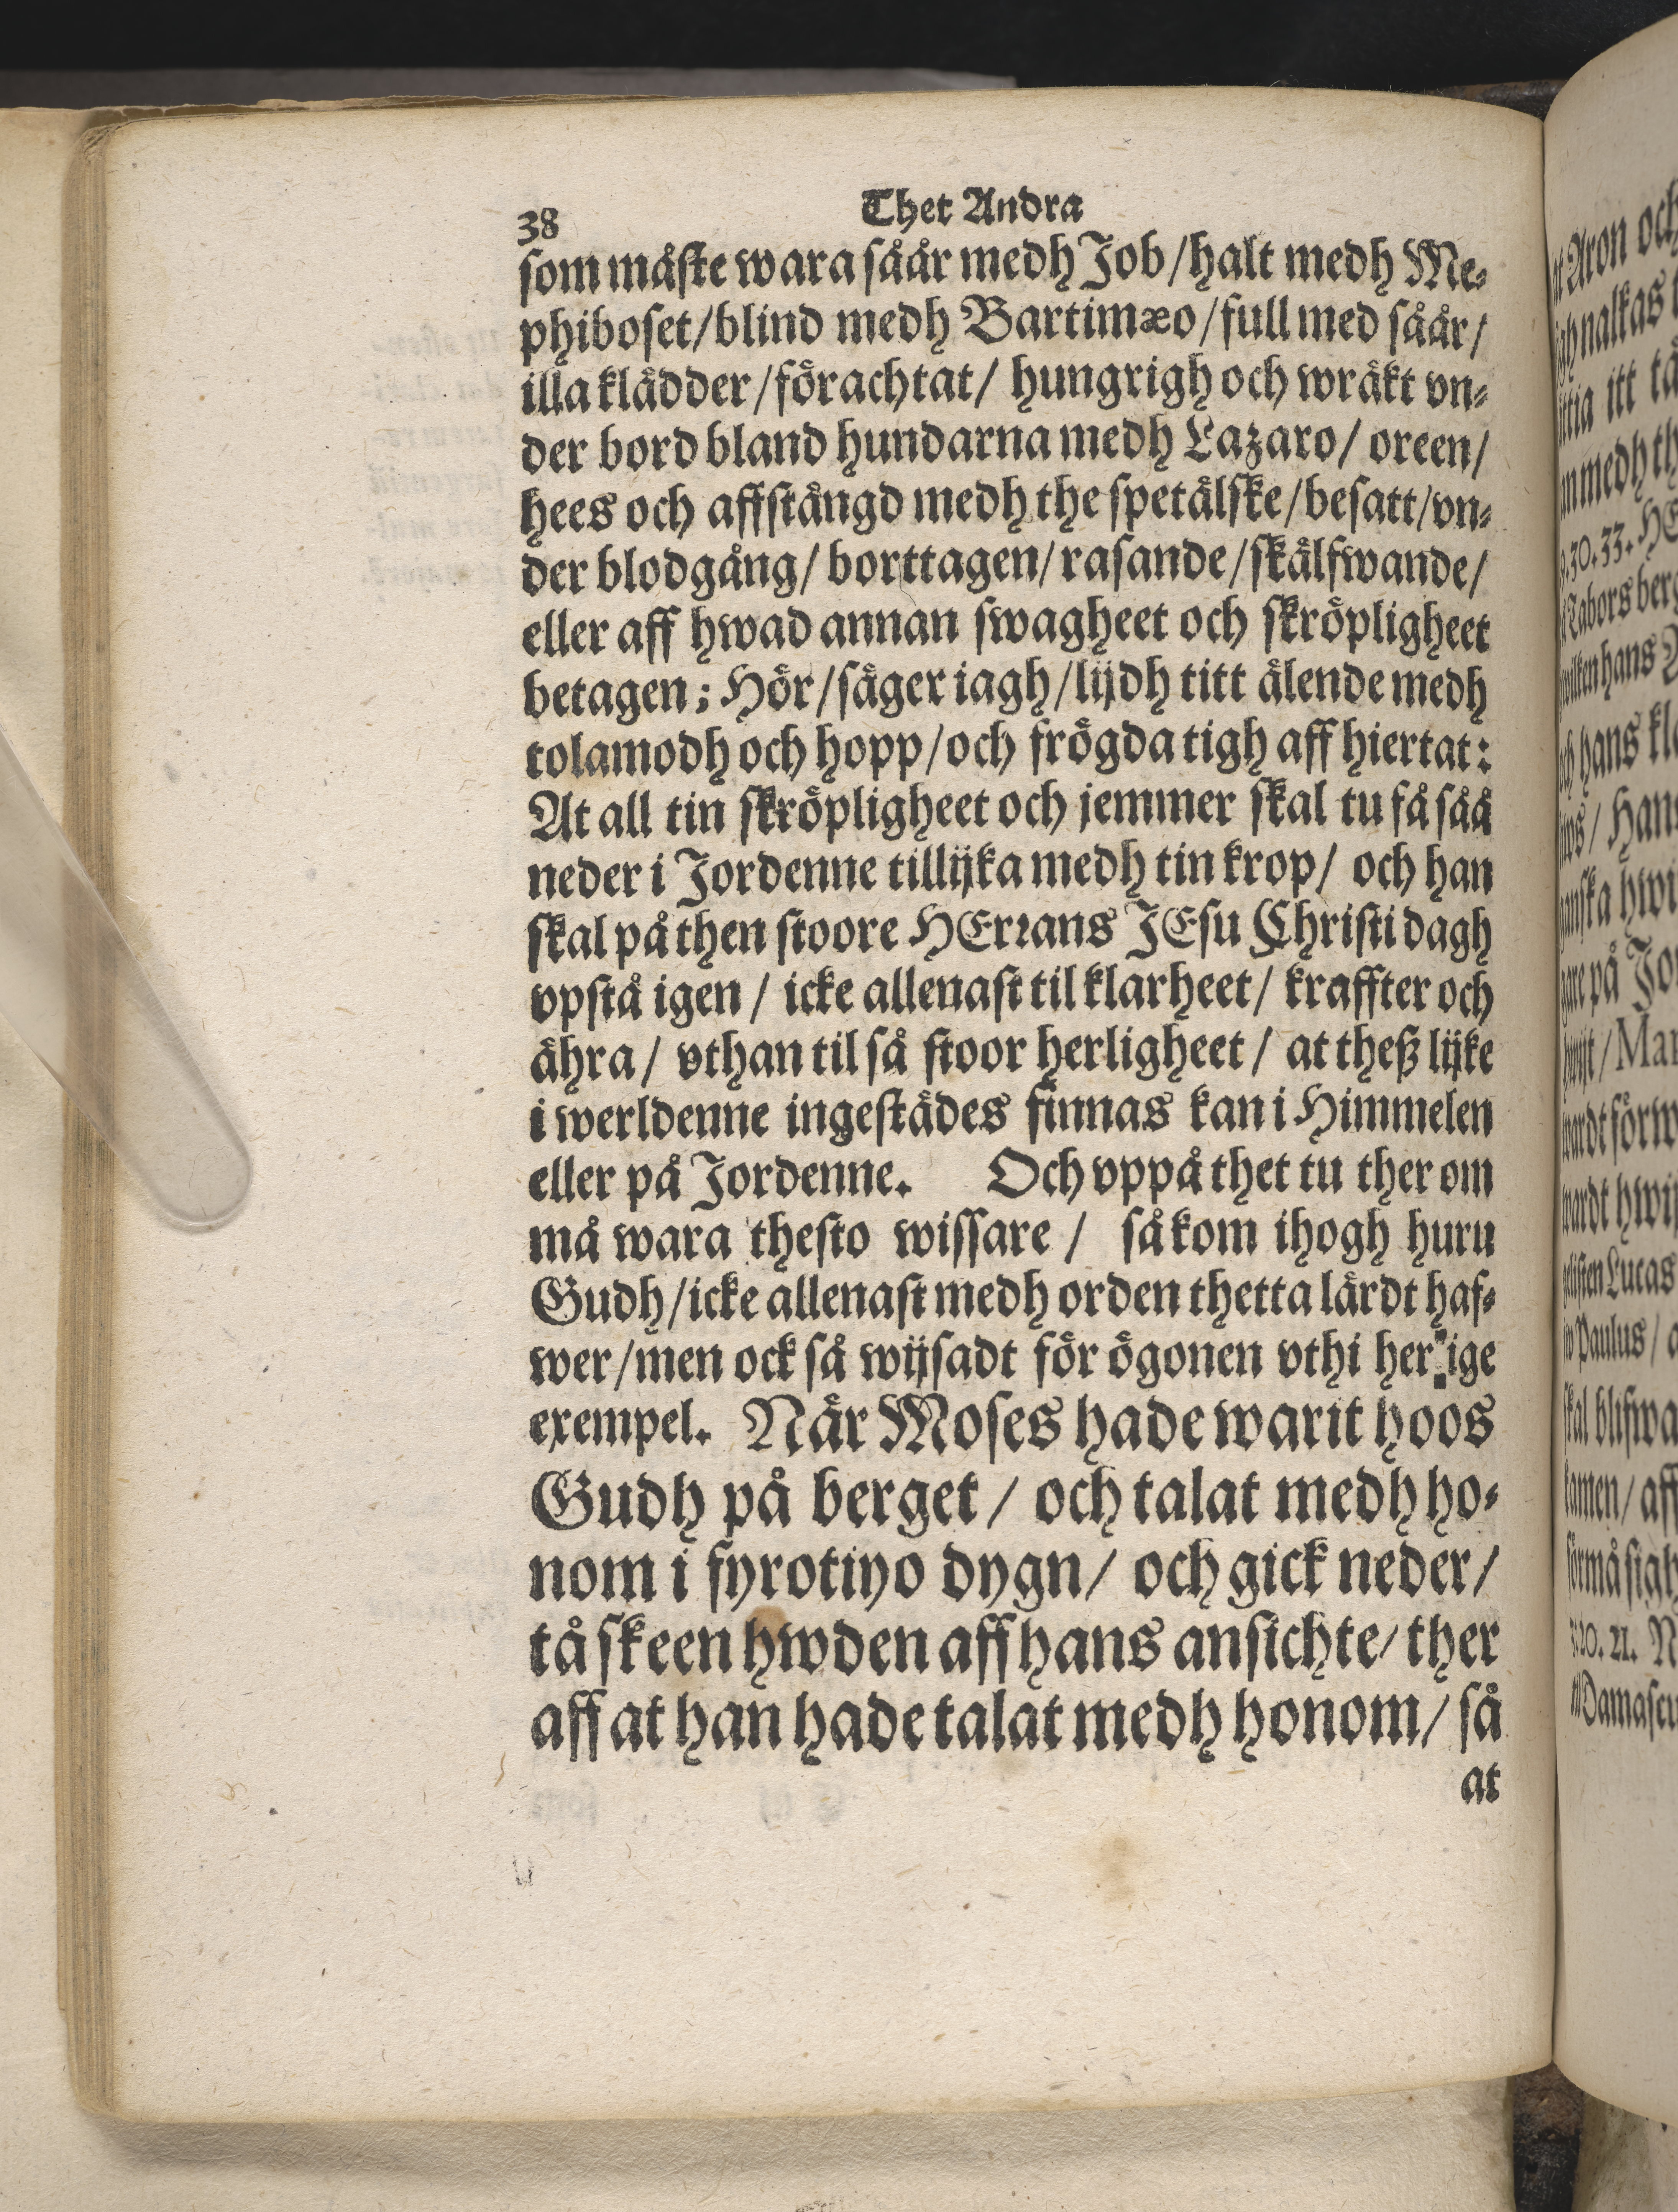 38 Thet Andra
som måste wara såår medh Job/halt medh Me-
phiboset/blind medh Bartimæo/full med såår/
illa klädder/förachtat/ hungrigh och wräkt vn-
der bord bland hundarna medh Lazaro/ oreen/
hees och affstängd medh the spetälske/besatt/vn-
der blodgång/ borttagen/ rasande/skälfwande/
eller aff hwad annan swagheet och skröpligheet
betagen; Hör/säger iagh/lijdh titt älende medh
tolamodh och hopp/och frögda tigh aff hiertat:
At all tin skröpligheet och jemmer skal tu få såå
neder i Jordenne tillijka medh tin krop/ och han
skal på then stoore HErrans JEsu Christi dagh
vpstå igen / icke allenast til klarheet/ kraffter och
ähra/ vthan til så stoor herligheet / at theß lijke
i werldenne ingestädes finnas kan i Himmelen
eller på Jordenne. Och vppå thet tu ther om
må wara thesto wissare / så kom ihogh huru
Gudh/icke allenast medh orden thetta lärdt haf-
wer/men ock så wijsadt för ögonen vthi her ige
exempel. När Moses hade warit hoos
Gudh på berget / och talat medh ho-
nom i fyrotiyo dygn/ och gick neder/
tå skeen hwden aff hans ansichte/ ther
aff at han hade talat medh honom/ så
at